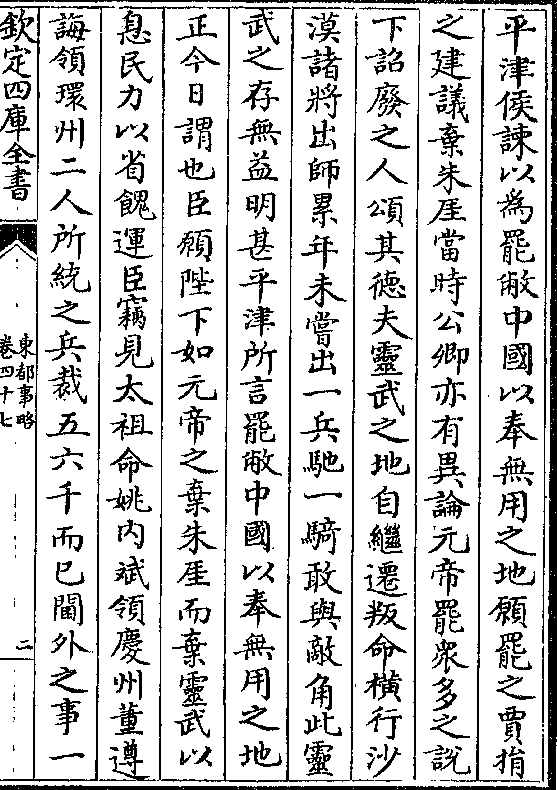 平津侯諫以為罷敝中國以奉無用之地願罷之賈捐
之建議棄朱厓當時公卿亦有異論元帝罷衆多之說
下詔廢之人頌其德夫靈武之地自繼遷叛命橫行沙
漠諸將出師累年未嘗出一兵馳一騎敢與敵角此靈
武之存無益明甚平津所言罷敝中國以奉無用之地
正今日謂也臣願陛下如元帝之棄朱厓而棄靈武以
息民力以省餽運臣竊見太祖命姚內斌領慶州董遵
誨領環州二人所統之兵裁五六千而已閫外之事一
欽定四庫全書
東都事略
卷四十七
二